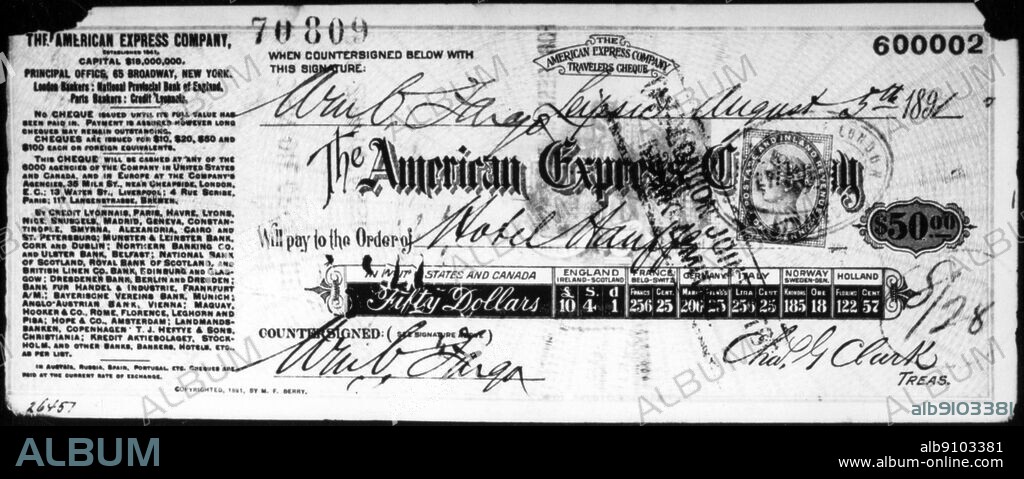 70809
600002
THE AMERICAN EXPRESS COMPANY,
ESTABLISHED 1841.
CAPITAL $18,000,000.
PRINCIPAL OFFICE, 65 BROADWAY, NEW YORK.
London Bankers: National Provincial Bank of England.
Paris Bankers: Credit Lyonnais.
NO CHEQUE ISSUED UNTIL ITS FULL VALUE HAS
BEEN PAID IN. PAYMENT IS ASSURED HOWEVER LONG
CHEQUES MAY REMAIN OUTSTANDING.
CHEQUES ARE ISSUED FOR $10, $20, $50 AND
$100 EACH OR FOREIGN EQUIVALENTS.
THIS CHEQUE WILL BE CASHED AT ANY OF THE
6000 AGENCIES OF THE COMPANY IN UNITED STATES
AND CANADA, AND IN EUROPE AT THE COMPANY'S
AGENCIES, 35 MILK ST., NEAR CHEAPSIDE, LONDON,
E. C.; 13 WATER ST., LIVERPOOL; 4 RUE SCRIBE,
PARIS; 117 LANGENSTRASSE, BREMEN.
BY CREDIT LYONNAIS, PARIS, HAVRE, LYONS,
NICE, BRUSSELS, MADRID, GENEVA, CONSTAN-
TINOPLE, SMYRNA, ALEXANDRIA, CAIRO AND
ST. PETERSBURG; MUNSTER & LEINSTER BANK,
CORK AND DUBLIN; NORTHERN BANKING CO.
AND ULSTER BANK, BELFAST; NATIONAL BANK
OF SCOTLAND, ROYAL BANK OF SCOTLAND, AND
BRITISH LINEN CO. BANK, EDINBURG AND GLAS-
GOW; DRESDENER BANK, BERLIN AND DRESDEN;
BANK FUR HANDEL & INDUSTRIE, FRANKFURT
A/M.; BAYERISCHE VEREINS BANK, MUNICH;
ANGLO-AUSTRIAN BANK, VIENNA; MAQUAY,
HOOKER & CO., ROME, FLORENCE, LEGHORN AND
PISA; HOPE & CO., AMSTERDAM; LANDMANDS-
BANKEN, COPENHAGEN; T. J. HEFTYE & SONS,
CHRISTIANIA; KREDIT AKTIEBOLAGET, STOCK-
HOLM, AND OTHER BANKS, BANKERS, HOTELS, ETC.,
AS PER LIST.
IN AUSTRIA, RUSSIA, SPAIN, PORTUGAL, ETC. CHEQUES ARE
PAID AT THE CURRENT RATE OF EXCHANGE.
WHEN COUNTERSIGNED BELOW WITH
THIS SIGNATURE:
THE
AMERICAN EXPRESS COMPANY
TRAVELERS CHEQUE.
Wm C. Fargo Leipsic August 5th 1891
The American Express Company
LONDON
$50.00
Will pay to the Order of Hotel Hauffe
IN UNITED STATES AND CANADA
Fifty Dollars
ENGLAND IRELAND-SCOTLAND £ S. d. 10 4 1
FRANCE BELG-SWITZ. FRANCS CENT. 256 25
GERMANY MARKS 206
ITALY LIRA CENT. 256 25
NORWAY SWEDEN-DEN. KRONOR ORE 185 18
HOLLAND FLORINS CENT. 122 57
COUNTERSIGNED: (SEE SIGNATURE ABOVE)
Wm C. Fargo
Chas. G Clark
TREAS.
COPYRIGHTED, 1891, BY M. F. BERRY.
26457
ALBUM
alb9103381
ALBUM
alb9103381
www.album-online.com